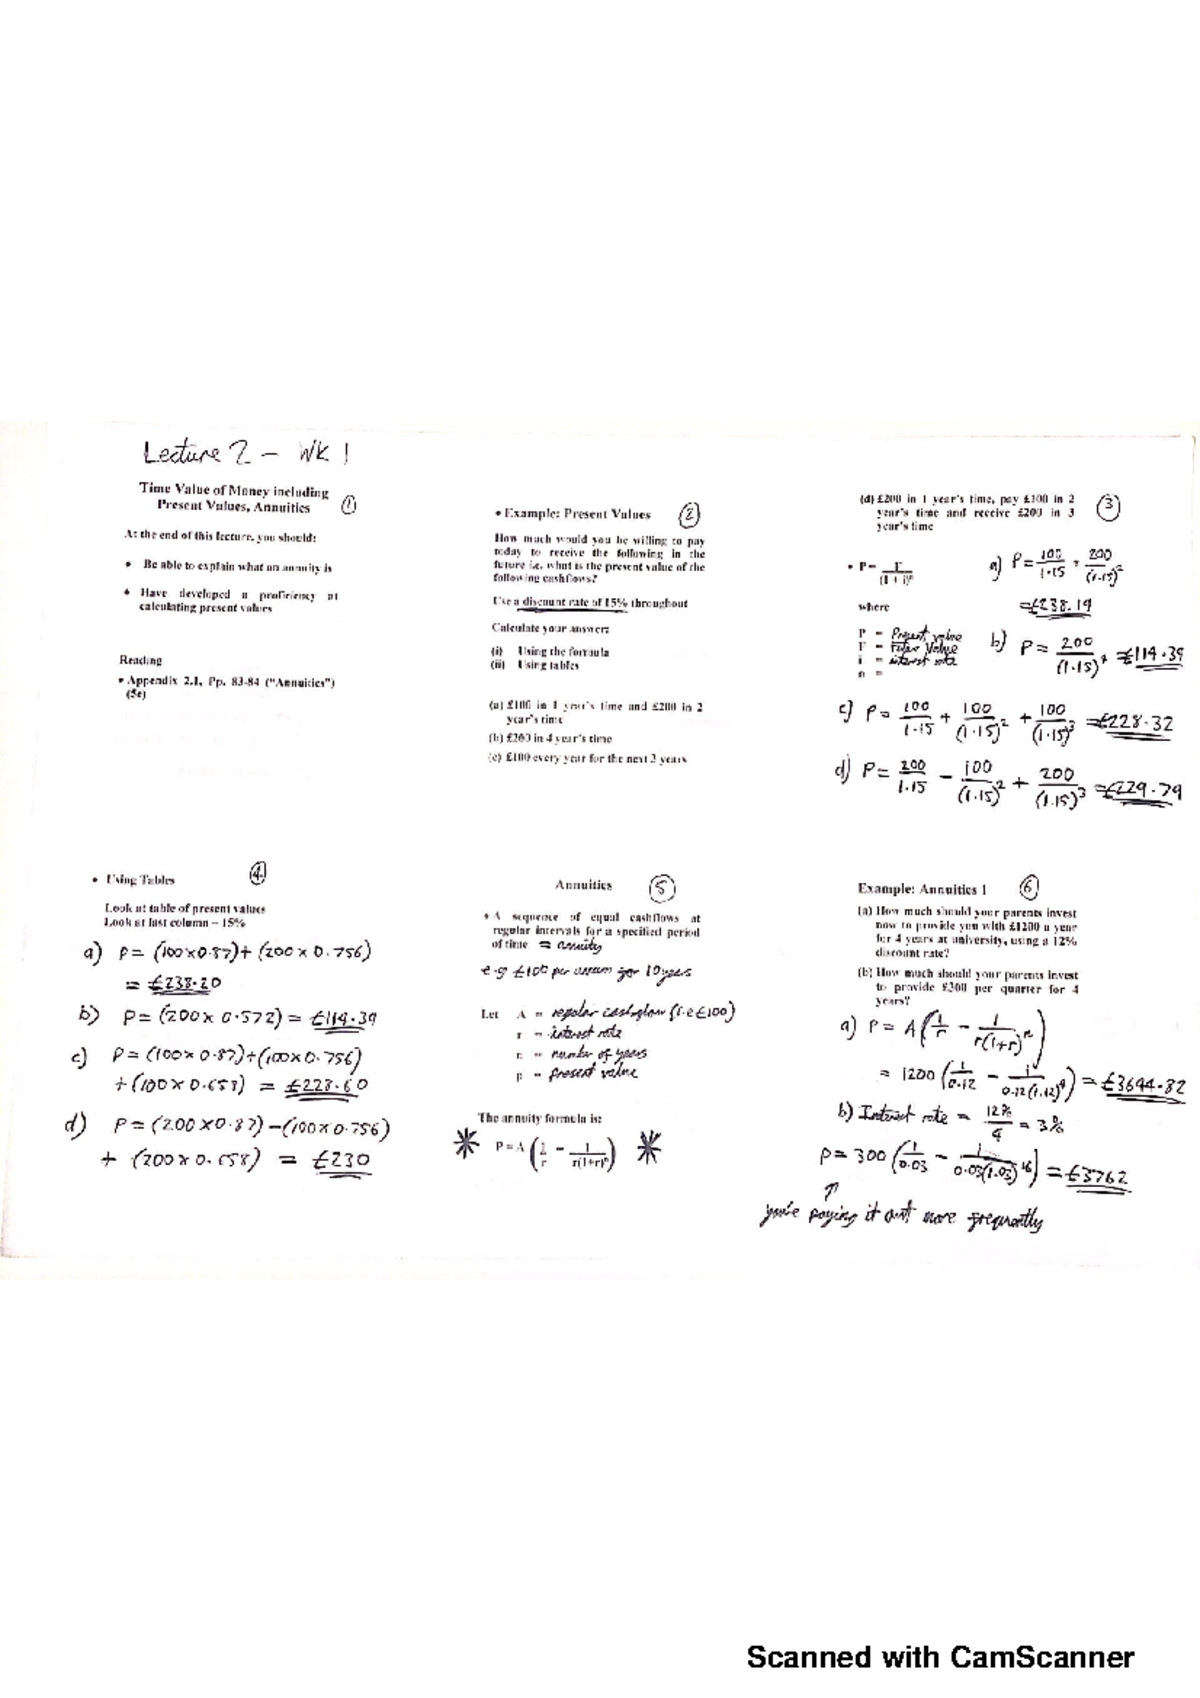 Lecture 2 - WK 1
Time Value of Money including
Present Values, Annuities
①
At the end of this lecture, you should:
• Be able to explain what an annuity is
• Have developed a proficiency at
calculating present values
Reading
• Appendix 2.1, Pp. 83-84 ("Annuities")
(5e)
• Example: Present Values
②
How much would you be willing to pay
today to receive the following in the
future i.e. what is the present value of the
following cashflows?
Use a discount rate of 15% throughout
Calculate your answer:
(i) Using the formula
(ii) Using tables
(a) £100 in 1 year's time and £200 in 2
year's time
(b) £200 in 4 year's time
(c) £100 every year for the next 3 years
(d) £200 in 1 year's time, pay £100 in 2
year's time and receive £200 in 3
year's time
③
• P = F/(1 + i)ⁿ
where
P = Present value
F = Future Value
i = interest rate
n =
a) P = 100/1.15 + 200/(1.15)²
= £238.19
b) P = 200/(1.15)⁴ = £114.39
c) P = 100/1.15 + 100/(1.15)² + 100/(1.15)³ = £228.32
d) P = 200/1.15 - 100/(1.15)² + 200/(1.15)³ = £229.79
• Using Tables
④
Look at table of present values
Look at last column – 15%
a) P = (100 x 0.87) + (200 x 0.756)
= £238.20
b) P = (200 x 0.572) = £114.39
c) P = (100 x 0.87) + (100 x 0.756)
+ (100 x 0.658) = £228.60
d) P = (200 x 0.87) - (100 x 0.756)
+ (200 x 0.658) = £230
Annuities
⑤
• A sequence of equal cashflows at
regular intervals for a specified period
of time = annuity
e.g £100 per annum for 10 years
Let A = regular cashflow (i.e £100)
r = interest rate
n = number of years
p = present value
The annuity formula is:
* P = A (1/r - 1/r(1+r)ⁿ) *
Example: Annuities 1
⑥
(a) How much should your parents invest
now to provide you with £1200 a year
for 4 years at university, using a 12%
discount rate?
(b) How much should your parents invest
to provide £300 per quarter for 4
years?
a) P = A (1/r - 1/r(1+r)ⁿ)
= 1200 (1/0.12 - 1/0.12(1.12)⁴) = £3644.82
b) Interest rate = 12%/4 = 3%
P = 300 (1/0.03 - 1/0.03(1.03)¹⁶) = £3762
↑
you're paying it out more frequently
Scanned with CamScanner